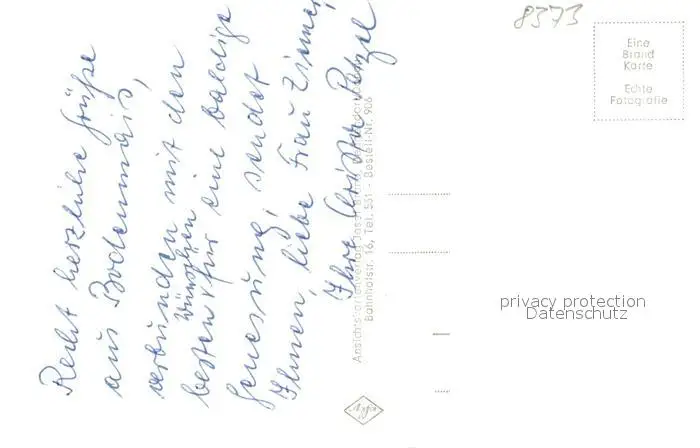 8373
Eine
Brand
Karte
Echte
Fotografie
Recht herzliche Grüße
aus Bodenmais,
verbunden mit den
besten Wünschen für eine baldige
Genesung, sendet
Ihnen, liebe Frau Zimmer,
Ihre Christa Petzel
Ansichtskartenverlag Josef Brand,
Bahnhofstr. 16, Tel. 551 - Bestell-Nr. 906
Agfa
privacy protection
Datenschutz